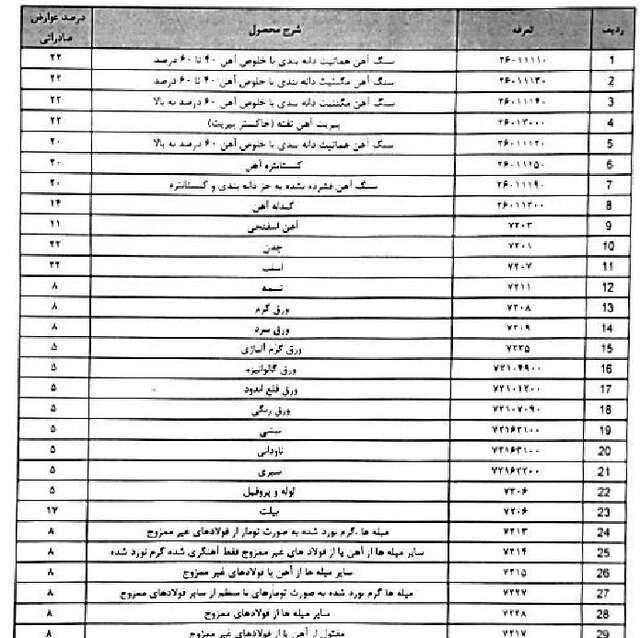 ردیف تعرفه شرح محصول درصد عوارض صادراتی
1 ۲۶۰۱۱۱۱۰ سنگ آهن هماتیت دانه بندی با خلوص آهن ۴۰ تا ۶۰ درصد ۲۳
2 ۲۶۰۱۱۱۳۰ سنگ آهن مگنتیت دانه بندی با خلوص آهن ۴۰ تا ۶۰ درصد ۲۳
3 ۲۶۰۱۱۱۴۰ سنگ آهن مگنتیت دانه بندی با خلوص آهن ۶۰ درصد به بالا ۲۳
4 ۲۶۰۱۲۰۰۰ پیریت آهن تفته (خاکستر پیریت) ۲۳
5 ۲۶۰۱۱۱۲۰ سنگ آهن هماتیت دانه بندی با خلوص آهن ۶۰ درصد به بالا ۲۰
6 ۲۶۰۱۱۱۵۰ کنسانتره آهن ۲۰
7 ۲۶۰۱۱۱۹۰ سنگ آهن فشرده نشده به جز دانه بندی و کنسانتره ۲۰
8 ۲۶۰۱۱۲۰۰ گندله آهن ۱۴
9 ۷۲۰۳ آهن اسفنجی ۱۱
10 ۷۲۰۱ چدن ۲۳
11 ۷۲۰۷ اسلب ۲۳
12 ۷۲۱۱ تسمه ۸
13 ۷۲۰۸ ورق گرم ۸
14 ۷۲۰۹ ورق سرد ۸
15 ۷۲۲۵ ورق گرم آلیاژی ۵
16 ۷۲۱۰۴۹۰۰ ورق گالوانیزه ۵
17 ۷۲۱۰۱۲۰۰ ورق قلع اندود ۵
18 ۷۲۱۰۷۰۹۰ ورق رنگی ۵
19 ۷۲۱۶۲۱۰۰ نبشی ۵
20 ۷۲۱۶۳۱۰۰ ناودانی ۵
21 ۷۲۱۶۲۲۰۰ سپری ۵
22 ۷۳۰۶ لوله و پروفیل ۵
23 ۷۲۰۶ بیلت ۱۷
24 ۷۲۱۳ میله ها ،گرم نورد شده به صورت تومار از فولادهای غیر ممزوج ۸
25 ۷۲۱۴ سایر میله ها از آهن یا از فولاد های غیر ممزوج فقط آهنگری شده گرم نورد شده ۸
26 ۷۲۱۵ سایر میله ها از آهن یا فولادهای غیر ممزوج ۸
27 ۷۲۲۷ میله ها گرم نورد شده به صورت تومارهای نا منظم از سایر فولادهای ممزوج ۸
28 ۷۲۲۸ سایر میله ها از فولادهای ممزوج ۸
29 ۷۲۱۷ مفتول از آهن یا از فولادهای غیر ممزوج ۸